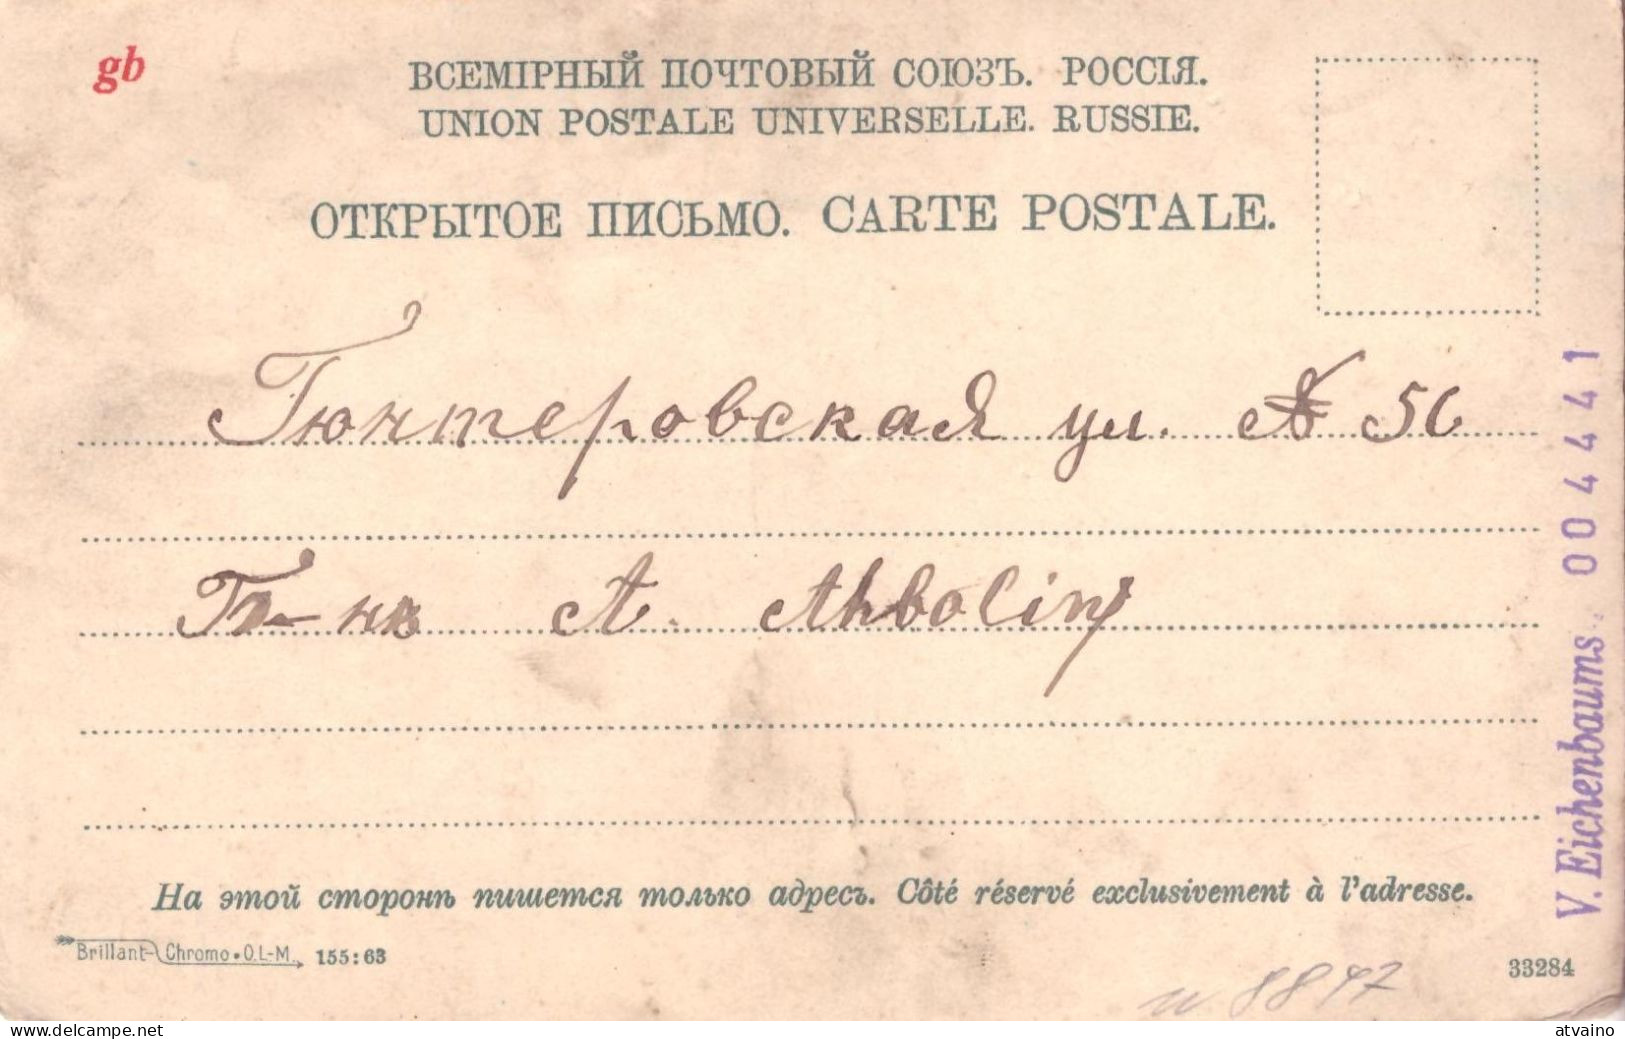 gb
ВСЕМІРНЫЙ ПОЧТОВЫЙ СОЮЗЪ. РОССІЯ.
UNION POSTALE UNIVERSELLE. RUSSIE.
ОТКРЫТОЕ ПИСЬМО. CARTE POSTALE.
Гюнтеровская ул. № 56
A. Ahbolin
На этой сторонѣ пишется только адресъ. Côté réservé exclusivement à l'adresse.
Brillant-Chromo • O.L-M. 155:63
33284
V. Eichenbaums. 004441
delcampe.net
atvaino